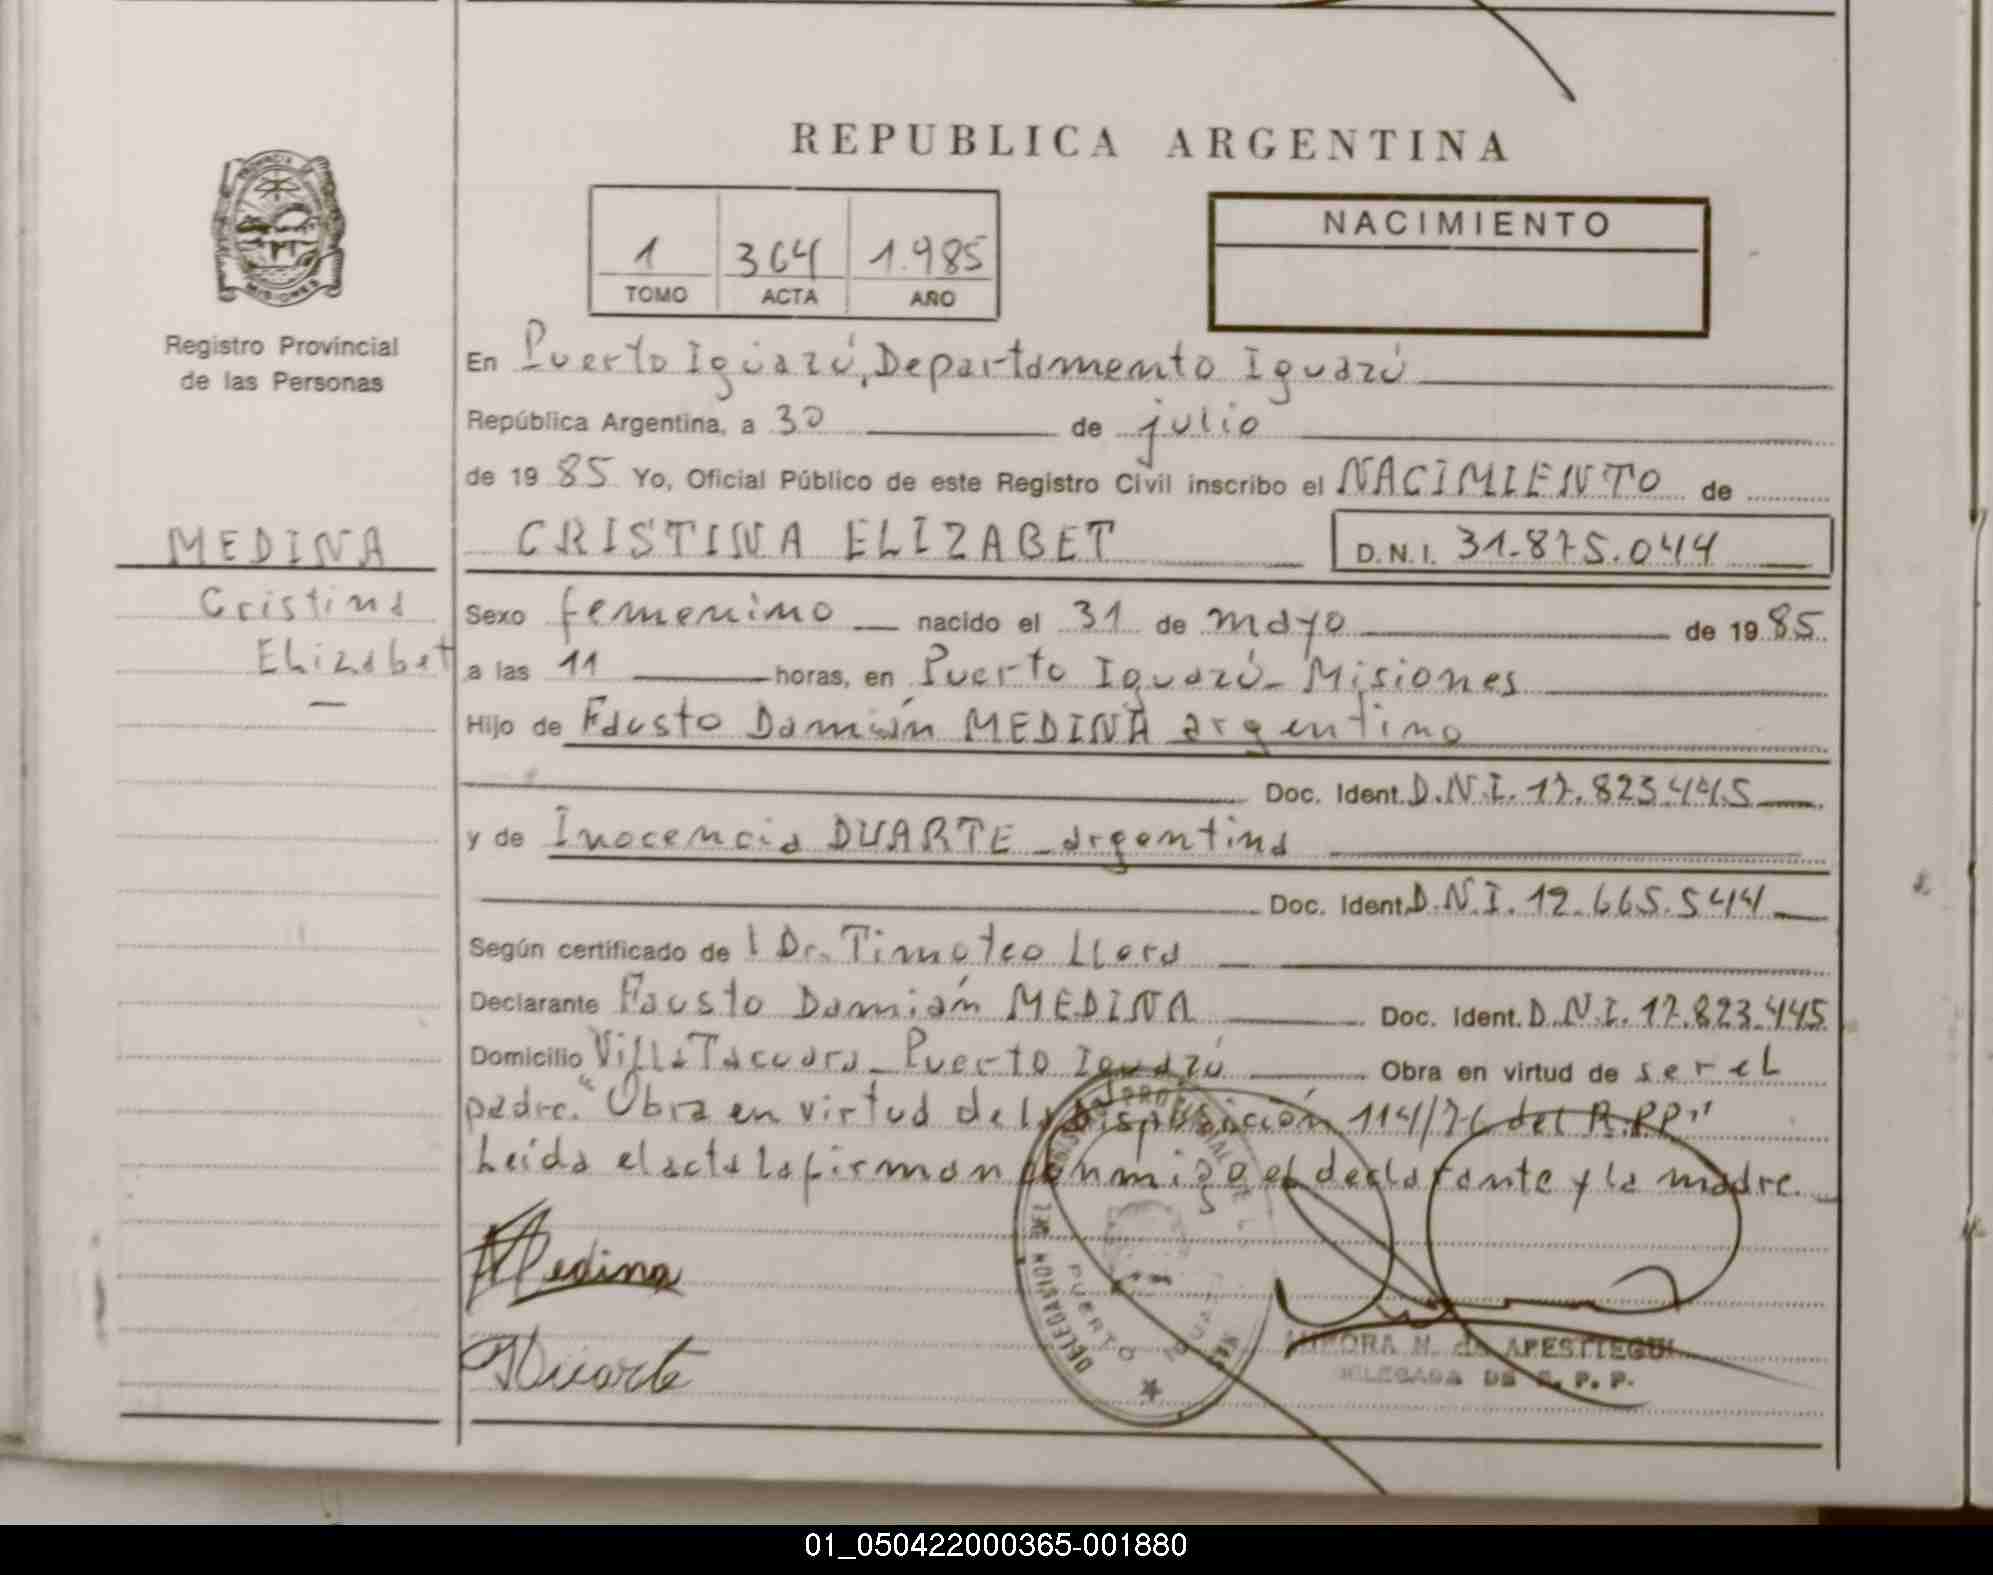 REPUBLICA ARGENTINA
PROVINCIA
MISIONES
Registro Provincial
de las Personas
1 364 1.985
TOMO ACTA AÑO
NACIMIENTO
En Puerto Iguazú, Departamento Iguazú
República Argentina, a 30 de julio
de 19 85 Yo, Oficial Público de este Registro Civil inscribo el NACIMIENTO de
MEDINA
Cristina
Elizabet
CRISTINA ELIZABET D.N.I. 31.875.044
Sexo femenino nacido el 31 de mayo de 19 85
a las 11 horas, en Puerto Iguazú - Misiones
Hijo de Fausto Damián MEDINA argentino
Doc. Ident. D.N.I. 17.823.445
y de Inocencia DUARTE - argentina
Doc. Ident. D.N.I. 12.665.544
Según certificado de l Dr. Timoteo Llera
Declarante Fausto Damián MEDINA Doc. Ident. D.N.I. 17.823.445
Domicilio Villa Tacuara - Puerto Iguazú Obra en virtud de ser el
padre. "Obra en virtud de la disposición 114/76 del R.P.P."
Leída el acta la firman conmigo el declarante y la madre.
Medina
Duarte
DELEGACION DEL
PUERTO
AURORA N. de APESTEGUI
DELEGADA DE R. P. P.
01_050422000365-001880